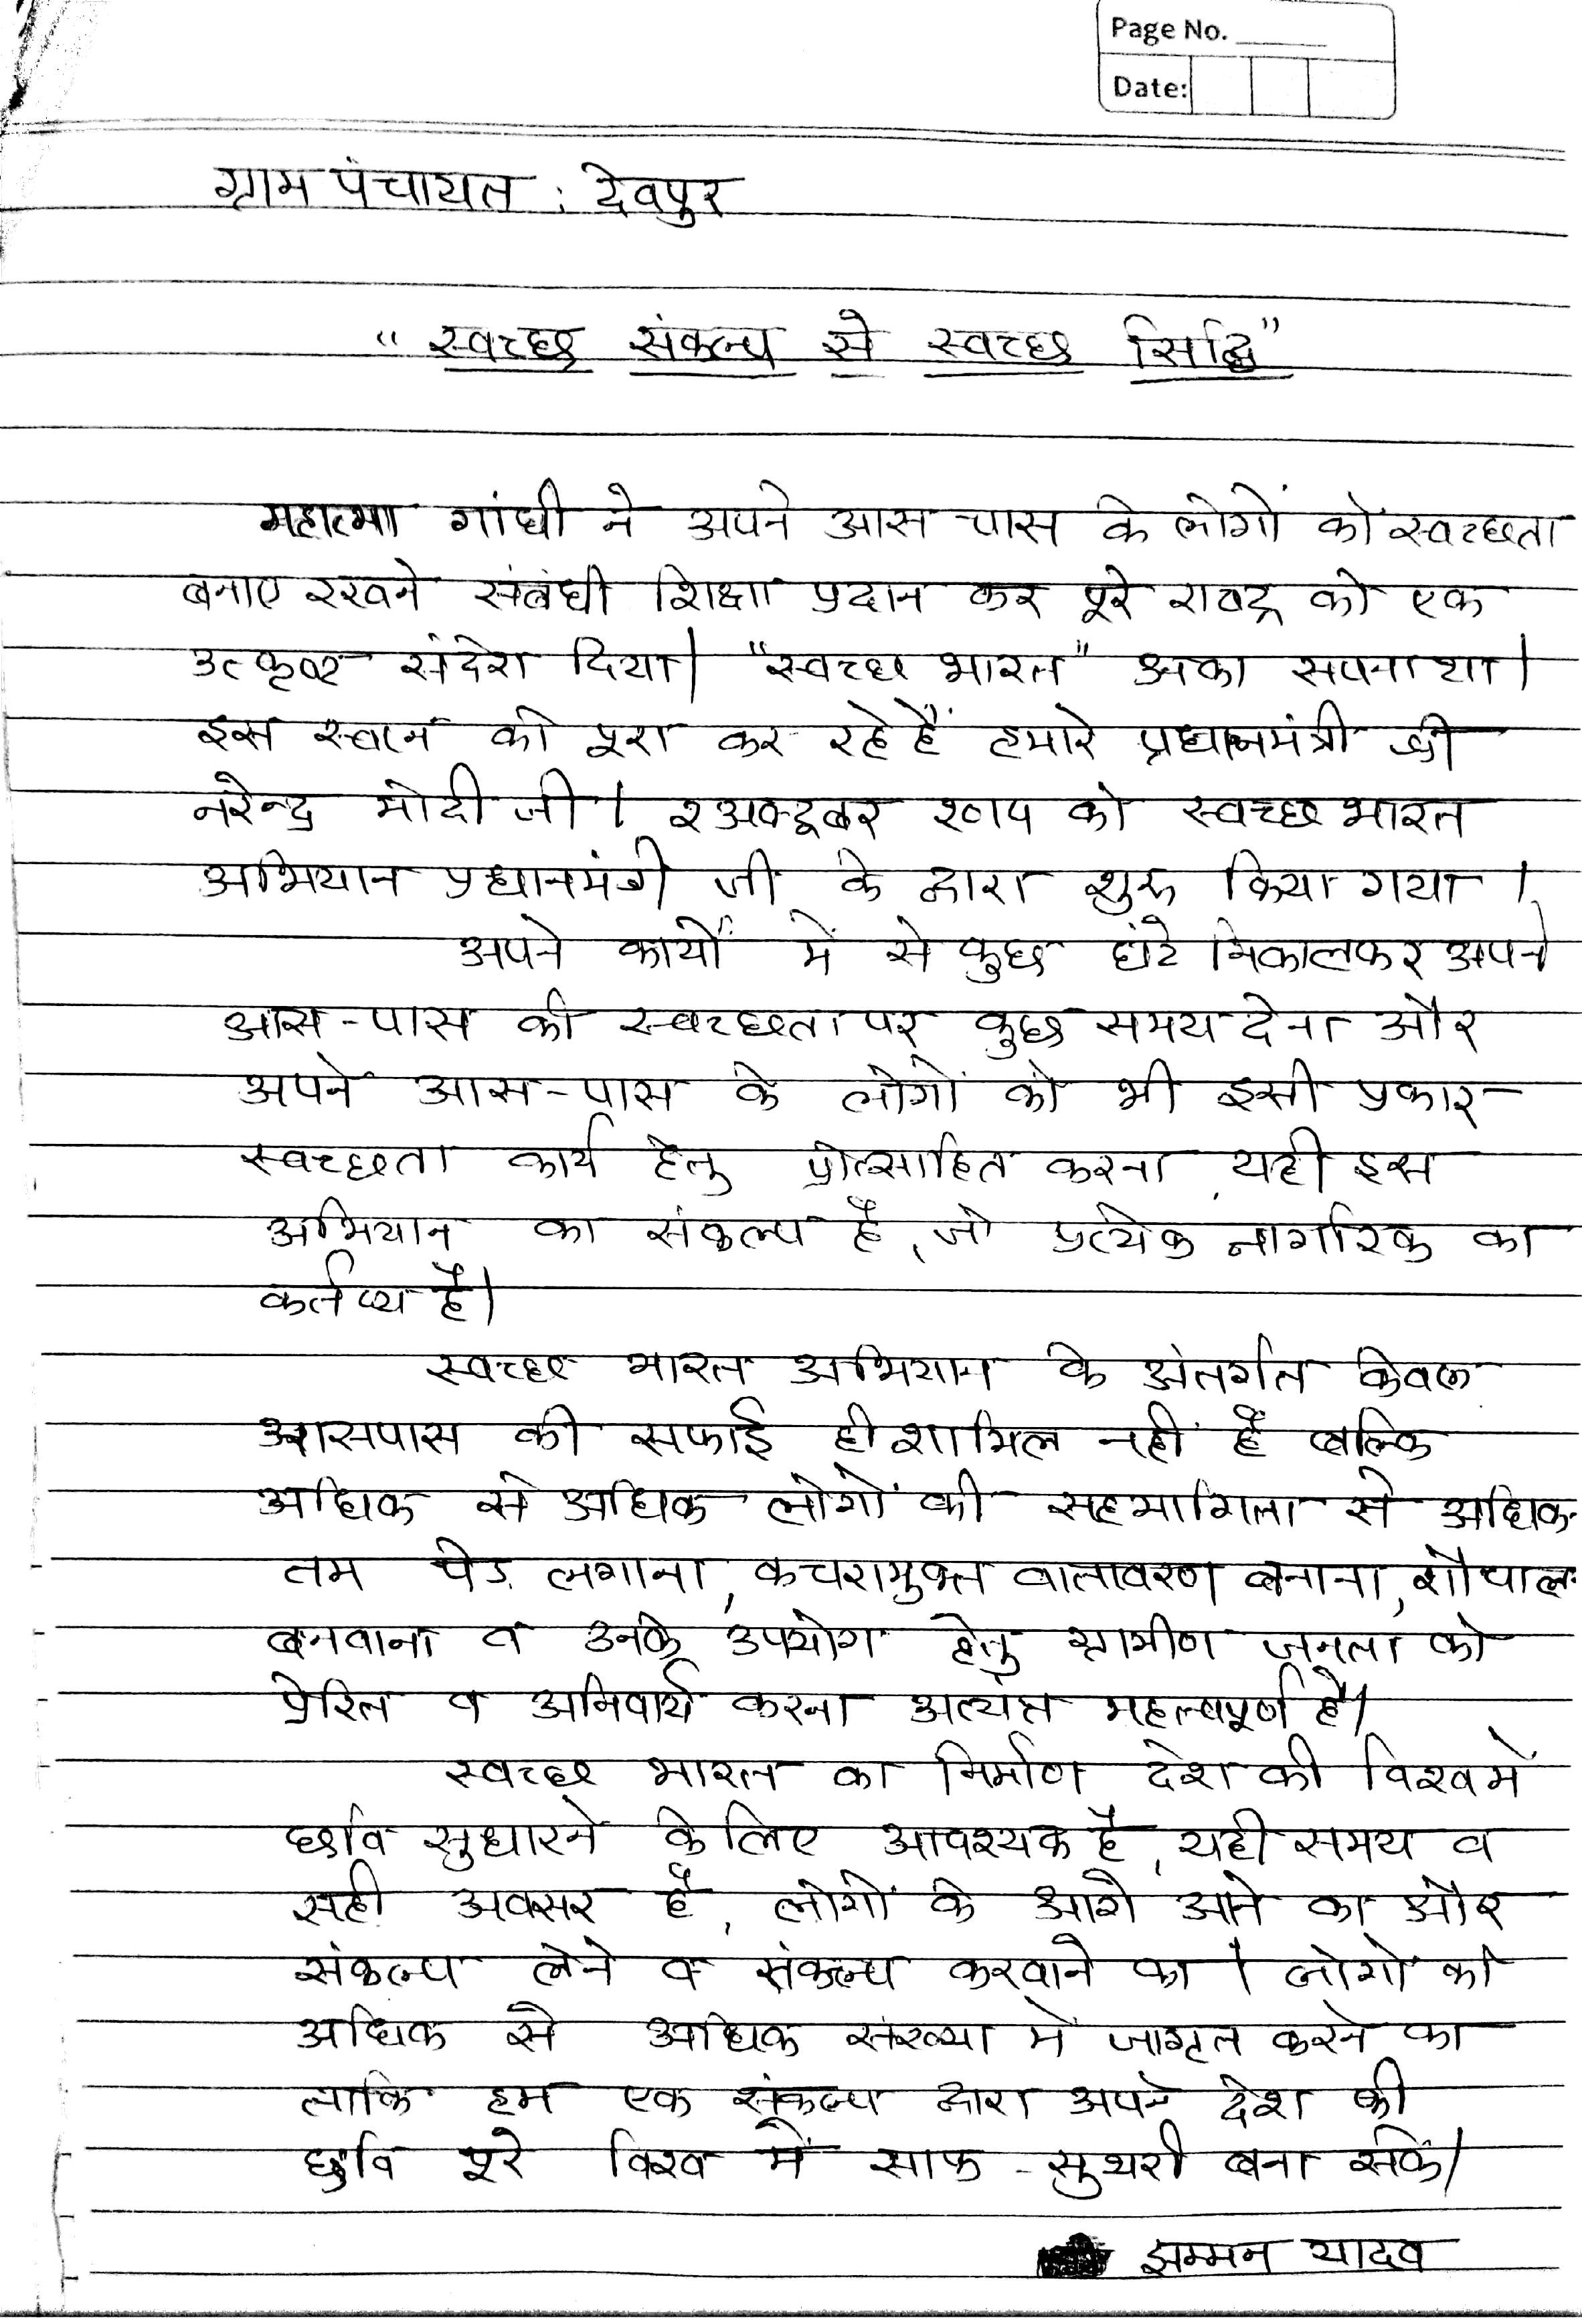 Page No.
Date:
ग्राम पंचायत : देवपुर
"स्वच्छ संकल्प से स्वच्छ सिद्धि"
महात्मा गांधी ने अपने आस पास के लोगों को स्वच्छता
बनाए रखने संबंधी शिक्षा प्रदान कर पूरे राष्ट्र को एक
उत्कृष्ट संदेश दिया। "स्वच्छ भारत" उनका सपना था।
इस स्वप्न को पूरा कर रहे हैं हमारे प्रधानमंत्री श्री
नरेन्द्र मोदी जी। २ अक्टूबर २०१५ को स्वच्छ भारत
अभियान प्रधानमंत्री जी के द्वारा शुरू किया गया।
अपने कार्यों में से कुछ घंटे निकालकर अपने
आस-पास की स्वच्छता पर कुछ समय देना और
अपने आस-पास के लोगों को भी इसी प्रकार
स्वच्छता कार्य हेतु प्रोत्साहित करना, यही इस
अभियान का संकल्प है, जो प्रत्येक नागरिक का
कर्तव्य है।
स्वच्छ भारत अभियान के अंतर्गत केवल
आसपास की सफाई ही शामिल नहीं है बल्कि
अधिक से अधिक लोगों की सहभागिता से अधिक-
तम पेड़ लगाना, कचरामुक्त वातावरण बनाना, शौचाल
बनवाना व उनके उपयोग हेतु ग्रामीण जनता को
प्रेरित व अनिवार्य करना अत्यंत महत्वपूर्ण है।
स्वच्छ भारत का निर्माण देश की विश्व में
छवि सुधारने के लिए आवश्यक है, यही समय व
सही अवसर है, लोगों के आगे आने का और
संकल्प लेने व संकल्प करवाने का। लोगों को
अधिक से अधिक संख्या में जागृत करने का
ताकि हम एक संकल्प द्वारा अपने देश की
छवि पूरे विश्व में साफ-सुथरी बना सकें।
झम्मन यादव